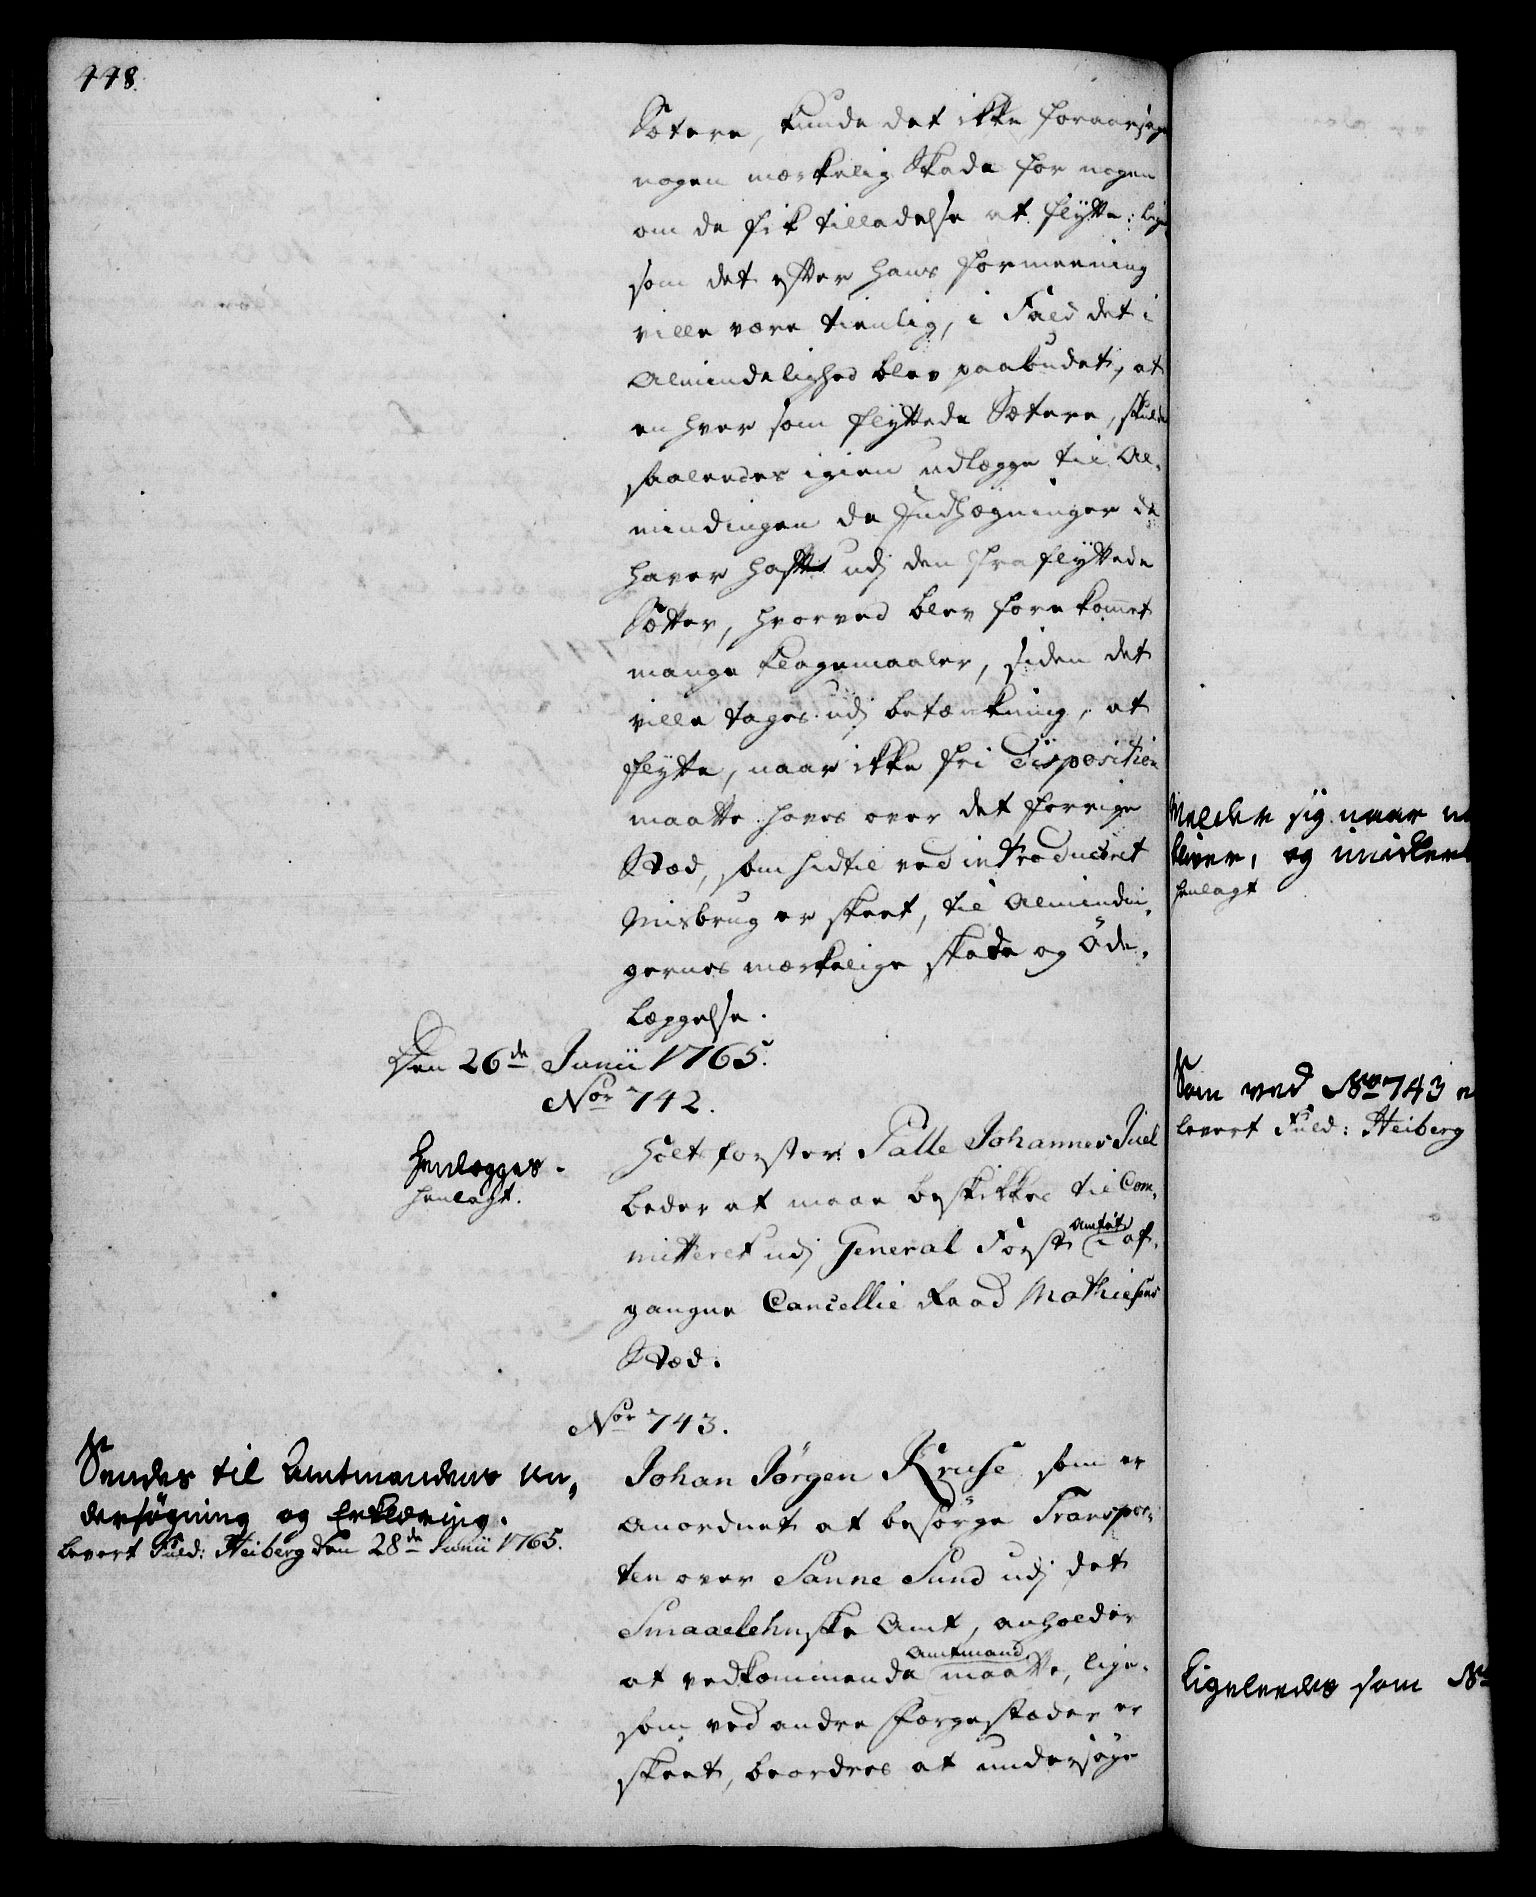 448.
Sætere, kunde det ikke foraarsage
nogen mærkelig Skade for nogen
om de fik tilladelse at flytte: lige
som det efter hans formeening
ville være tienlig, i Fald det i
Almindelighed blev paabudet, at
en hver som flyttede Sætere, skulde
saaledes igien udlægge til Al-
mindingen de Indhægninger de
haver hafft udj den fraflyttede
Sætter, hvorved blev forekommet
mange Klagemaaler, siden det
ville tages udj betænkning, at
flytte, naar ikke fri Disposition
maatte haves over det forrige
Stæd, som hidtil ved introduceret
Misbrug er skeet, til Almindin-
gernes mærkelige skade og Öde-
læggelse.
Den 26de Junii 1765.
Nor 742.
Henlægges.
henlagt.
Holtforster Palle Johannes Juel
beder at maae beskikkes til Com-
mitteret udj General Forst Amtet i af-
gangne Cancellie Raad Mathiesens
Stæd.
Nor 743.
Sendes til Amtmandens un-
dersøgning og Erklæring.
levert Fuld: Heiberg den 28de Junii 1765.
Johan Jörgen Kruse som er
anordnet at besörge Transpor-
ten over Sanne Sund udj det
Smaaelehnske Amt, anholder
at vedkommende Amtmand maatte, lige-
som ved andre Færgestæder er
skeet, beordres at undersøge
Melder sig naar
bliver, og imidlert
henlagt
Som ved No 743
levert Fuld: Heiberg
Ligeledes som No